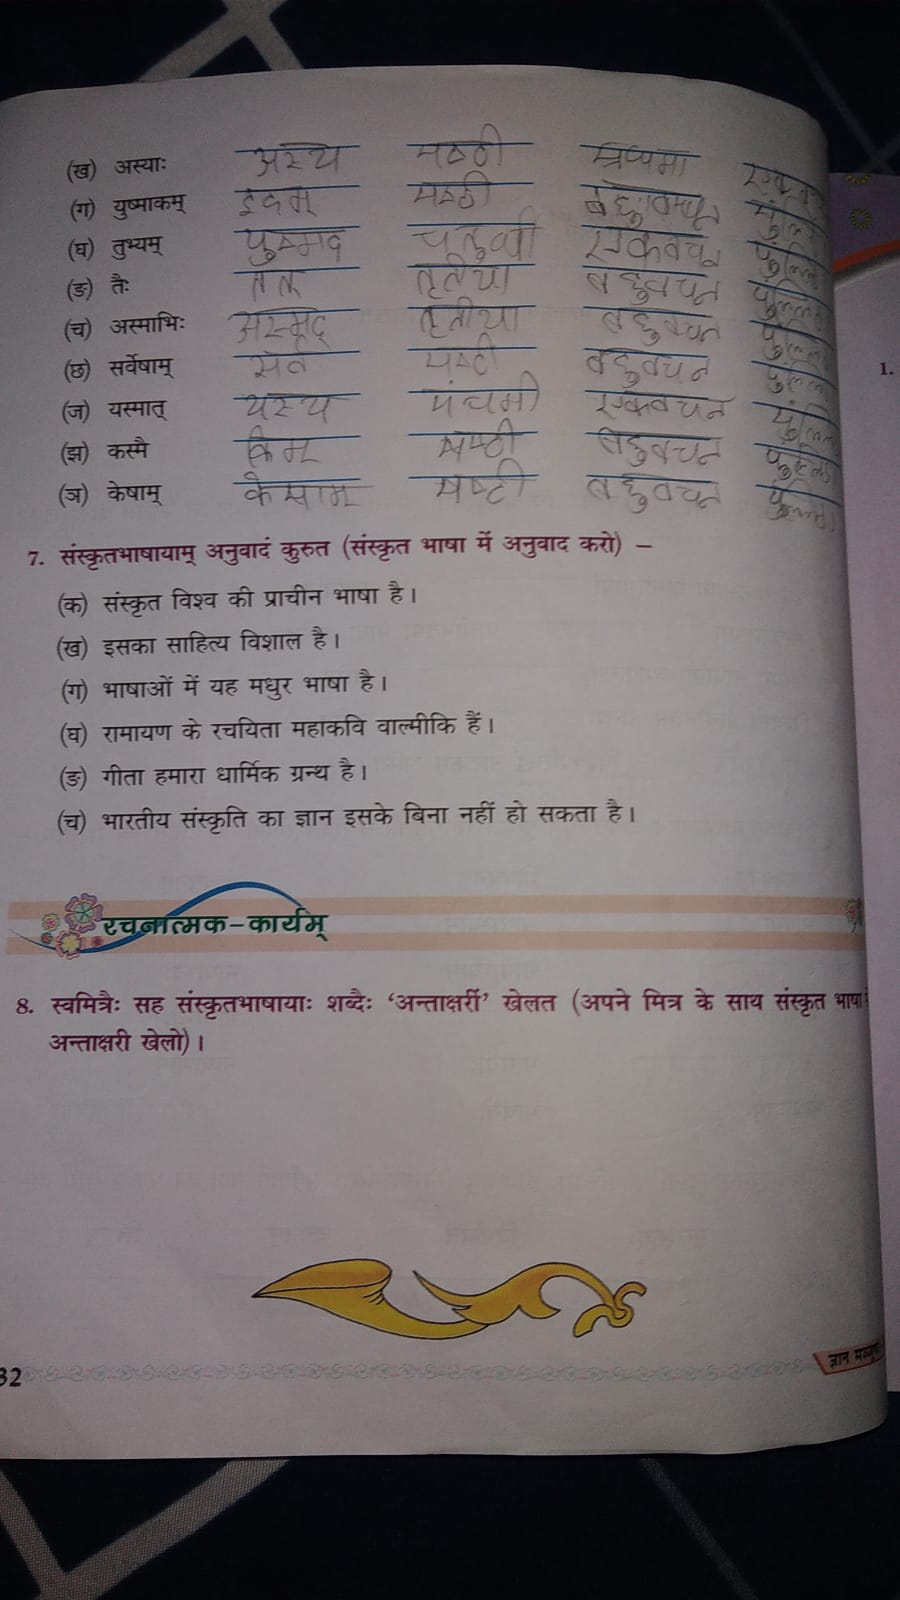 (ख) अस्याः अस्य षष्ठी
(ग) युष्माकम् इदम् षष्ठी बहुवचन
(घ) तुभ्यम् युष्मद चतुर्थी एकवचन
(ङ) तैः तत् तृतीया बहुवचन
(च) अस्माभिः अस्मद् तृतीया बहुवचन
(छ) सर्वेषाम् सर्व षष्ठी बहुवचन
(ज) यस्मात् यस्य पंचमी एकवचन
(झ) कस्मै किम् षष्टी बहुवचन
(ञ) केषाम् केषाम षष्टी बहुवचन
7. संस्कृतभाषायाम् अनुवादं कुरुत (संस्कृत भाषा में अनुवाद करो) –
(क) संस्कृत विश्व की प्राचीन भाषा है।
(ख) इसका साहित्य विशाल है।
(ग) भाषाओं में यह मधुर भाषा है।
(घ) रामायण के रचयिता महाकवि वाल्मीकि हैं।
(ङ) गीता हमारा धार्मिक ग्रन्थ है।
(च) भारतीय संस्कृति का ज्ञान इसके बिना नहीं हो सकता है।
रचनात्मक-कार्यम्
8. स्वमित्रैः सह संस्कृतभाषायाः शब्दैः 'अन्ताक्षरीं' खेलत (अपने मित्र के साथ संस्कृत भाषा
अन्ताक्षरी खेलो)।
1.
32
ज्ञान